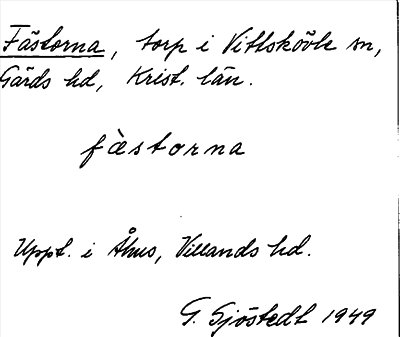 Fästorna, torp i Vittskövle sn,
Gärds hd, Krist. län.
fæ̀storna
Uppt. i Åhus, Villands hd.
G. Sjöstedt 1949